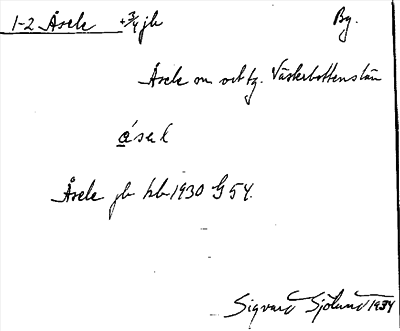 1-2 Åsele +3/4 jb Bg.
Åsele sn och tg. Västerbottens län
åsell
Åsele jb hb 1930 G 54.
Sigvard Sjölund 1934